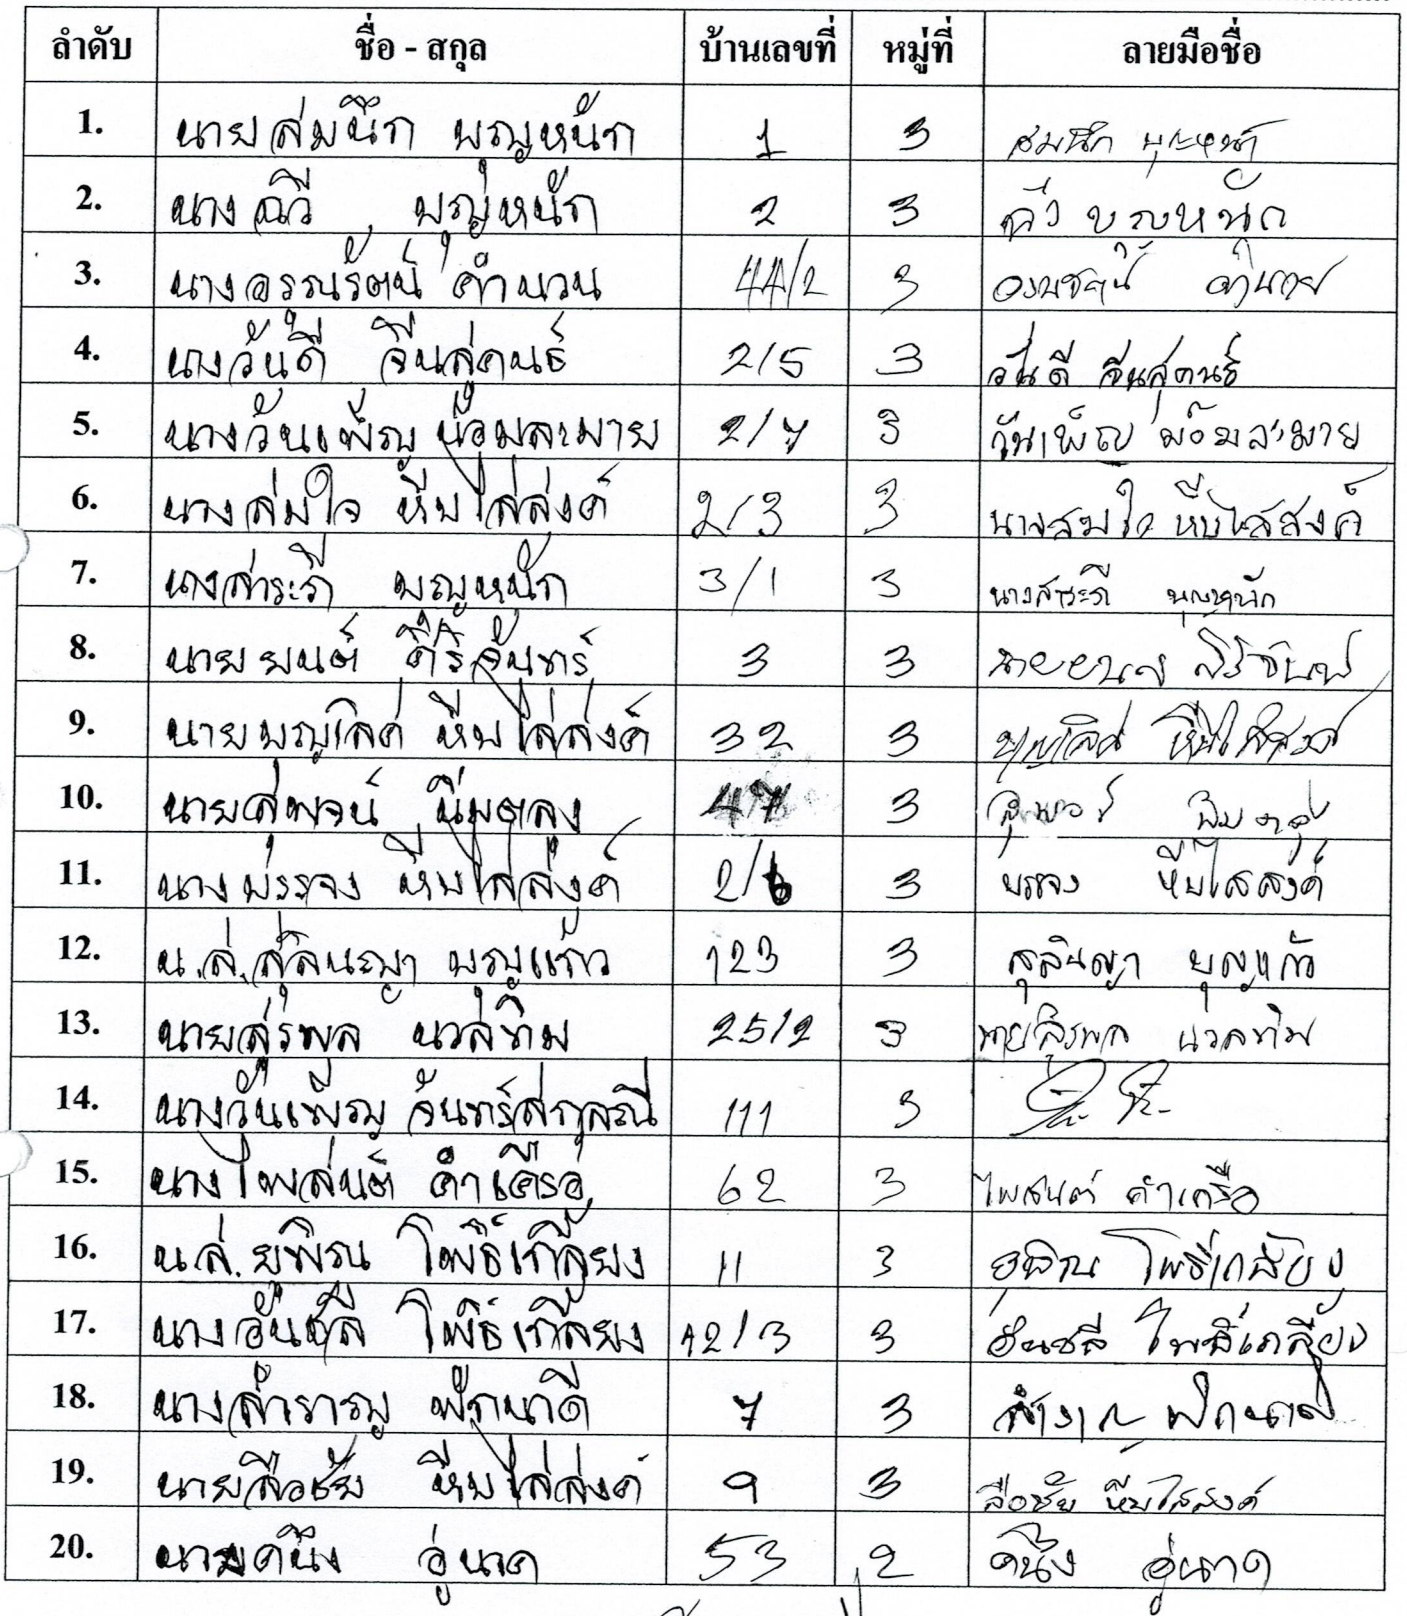 ลำดับ ชื่อ - สกุล บ้านเลขที่ หมู่ที่ ลายมือชื่อ
1. นายสมนึก บุญหนัก 1 3 สมนึก บุญหนัก
2. นางฉวี บุญหนัก 2 3 ฉวี บุญหนัก
3. นางอรรณรัตน์ คำนวน 44/2 3
4. นางวันดี จีนสุคนธ์ 2/5 3 วันดี จีนสุคนธ์
5. นางวันเพ็ญ น้อมละมาย 2/7 3 วันเพ็ญ น้อมละมาย
6. นางสมใจ หีบไสส่งค์ 2/3 3 นางสมใจ หีบไสสงค์
7. นางสาระภี บุญหนัก 3/1 3 นางสาระภี บุญหนัก
8. นายยนต์ ศิริจันทร์ 3 3
9. นายบุญเลิศ หีบไสส่งค์ 32 3 บุญเลิศ หีบไสสงค์
10. นายสุพจน์ นิ่มตลุง 47 3
11. นางบรรจง หีบไสส่งค์ 2/6 3 บรรจง หีบไสสงค์
12. น.ส.สุลินญา บุญแก้ว 123 3 สุลินญา บุญแก้ว
13. นายสุรพล นวลทิม 25/2 3 นายสุรพล นวลทิม
14. นางวันเพ็ญ จันทร์สกุลณี 111 3
15. นางไพสนต์ คำเครือ 62 3 ไพสนต์ คำเครือ
16. น.ส.ยุพิณ โพธิ์เกลี้ยง 11 3 ยุพิณ โพธิ์เกลี้ยง
17. นางอัญชลี โพธิ์เกลี้ยง 12/3 3 อัญชลี โพธิ์เกลี้ยง
18. นางสำราญ ฟักนาดี 7 3
19. นายลือชัย หีบไสส่งค์ 9 3 ลือชัย หีบไสสงค์
20. นายคนึง อู่นาค 53 2 คนึง อู่นาค